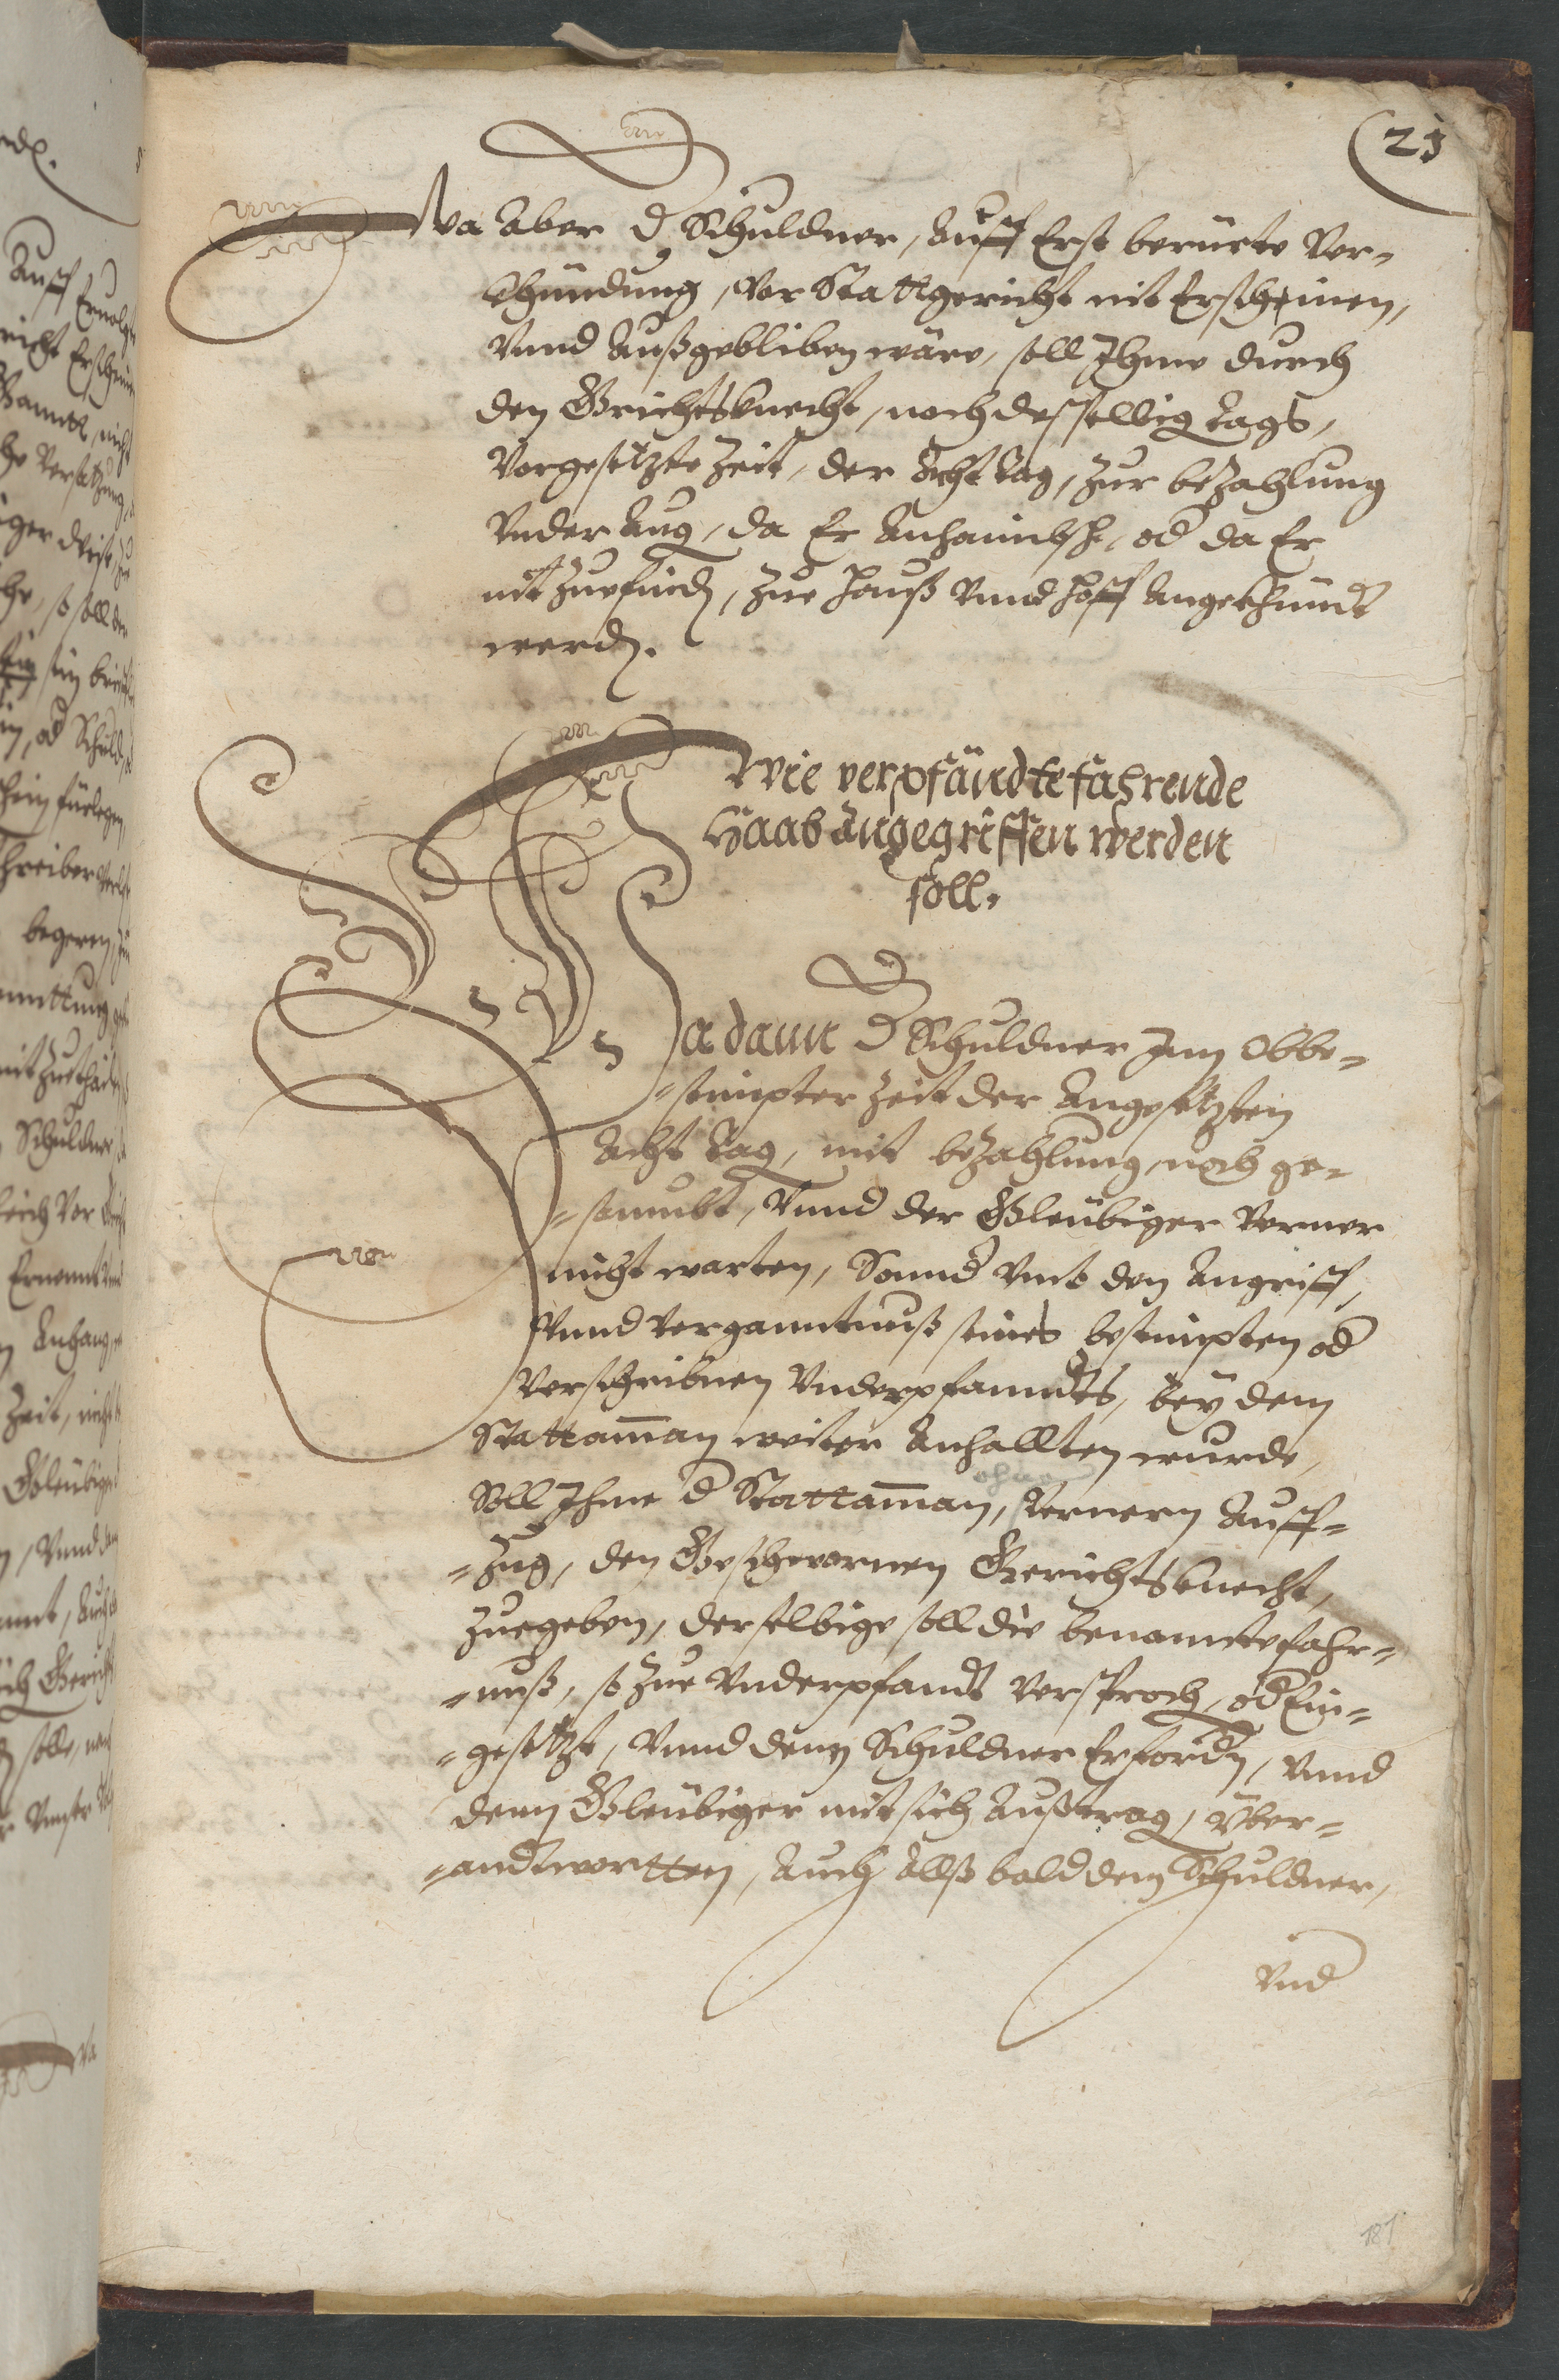 23
Wa Aber d Schuldner, Auff Erst berüerte Ver-
khündung, vor Stattgericht nit Erscheinen,
Vnnd Außgebliben wäre, soll Ihme durch
den Grichtsknecht, noch desselbig tags,
Vorgesetzte Zeit, der Acht tag, zur bezahlung
Vnder Aug, da Er Anhaimbsch, od da Er
nit zuefind, zue Hauß Vnnd Hoff Angekhündt
werd.
Wie verpfändte fahrende
Haab angegriffen werden
soll.
Wa dann d Schuldner Inn Obbe-
-stimpter Zeit der Angesetzten
Acht tag, mit bezahlung noch ge-
-sombt, Vnnd der Gleübiger Verner
nicht warten, Sonnd Vmb den Angriff,
Vnnd Vergannttnuß seines bestimpten od
Verschribnen Vnderpfanndts, bey dem
Stattamman weiter Anhallten wurde,
Soll Ihme d Stattamman, ohne Vernern Auff-
-zug, den Geschwornen Gerichtsknecht,
zuegeben, derselbige soll die benannte fahr-
-nuß, so zue Vnderpfandt versproch, od Ein-
-gesetzt, Vnnd denn Schuldner Erfordn, Vnnd
denn Gleübiger mit sich Außtrag, Vber-
-andtwortten, Auch Allßbald dem Schuldner,
Vnd
187